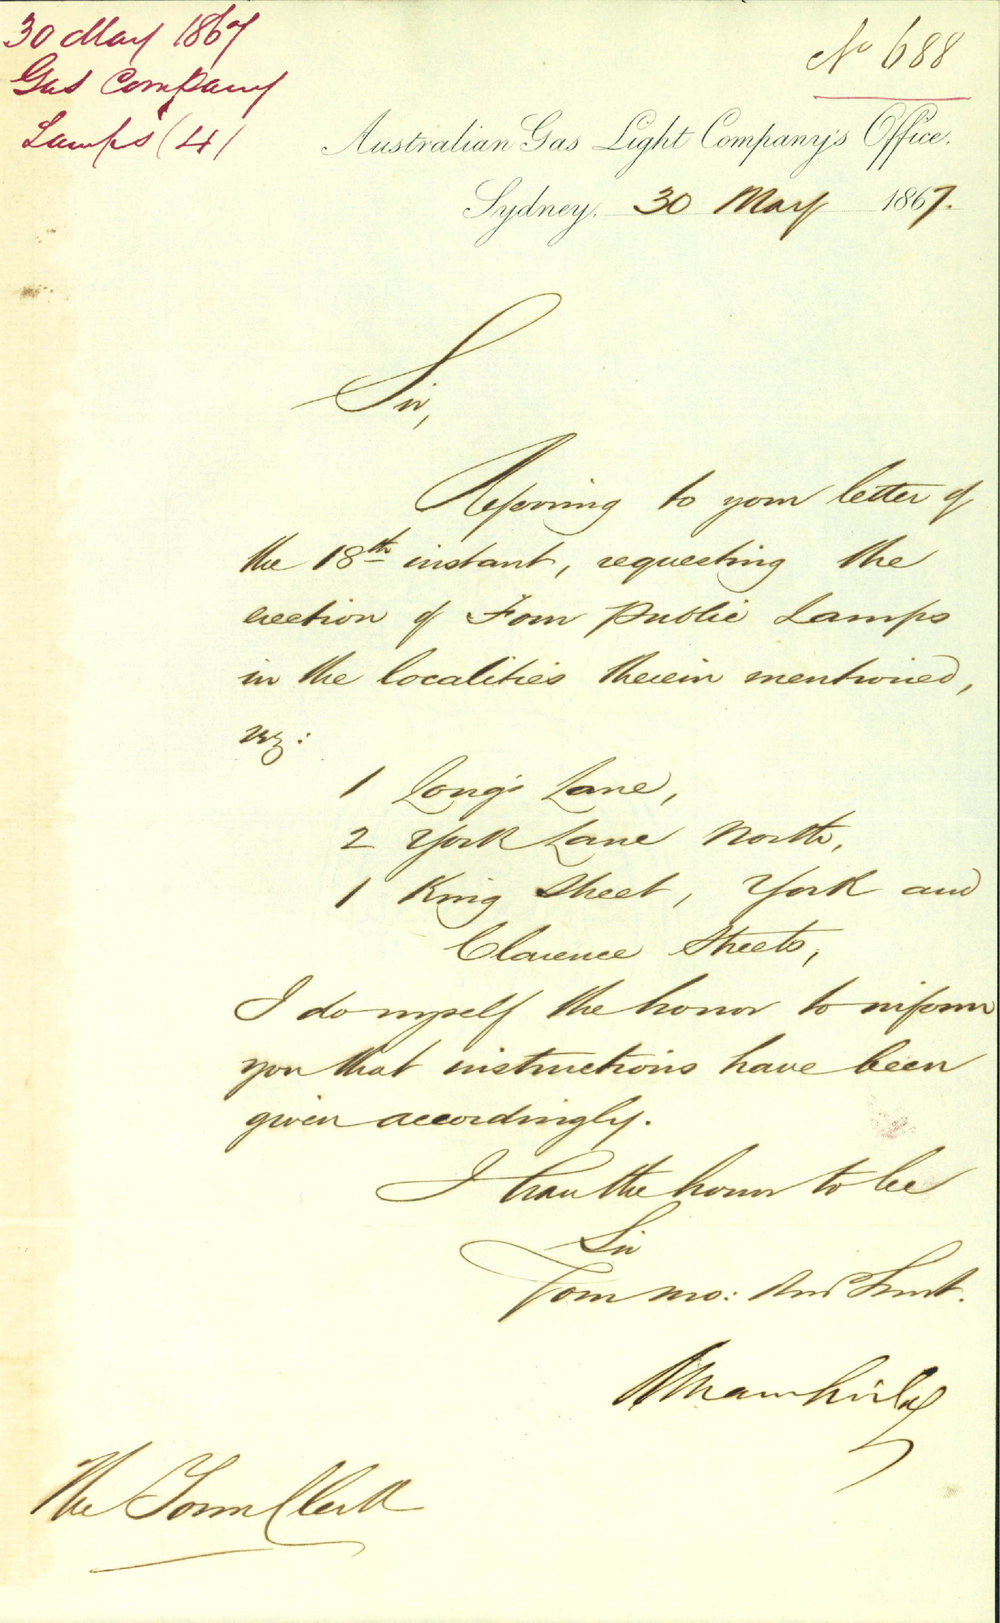 30 May 1867
Gas Company
Lamps (4)
No 688
Australian Gas Light Company's Office.
Sydney, 30 May 1867.
Sir,
Referring to your letter of
the 18th instant, requesting the
erection of Four Public Lamps
in the localities therein mentioned,
viz:
1 Long's Lane,
2 York Lane North,
1 King Street, York and
Clarence Streets,
I do myself the honor to inform
you that instructions have been
given accordingly.
I have the honor to be
Sir
Your mo: Obd Servt.
The Town Clerk